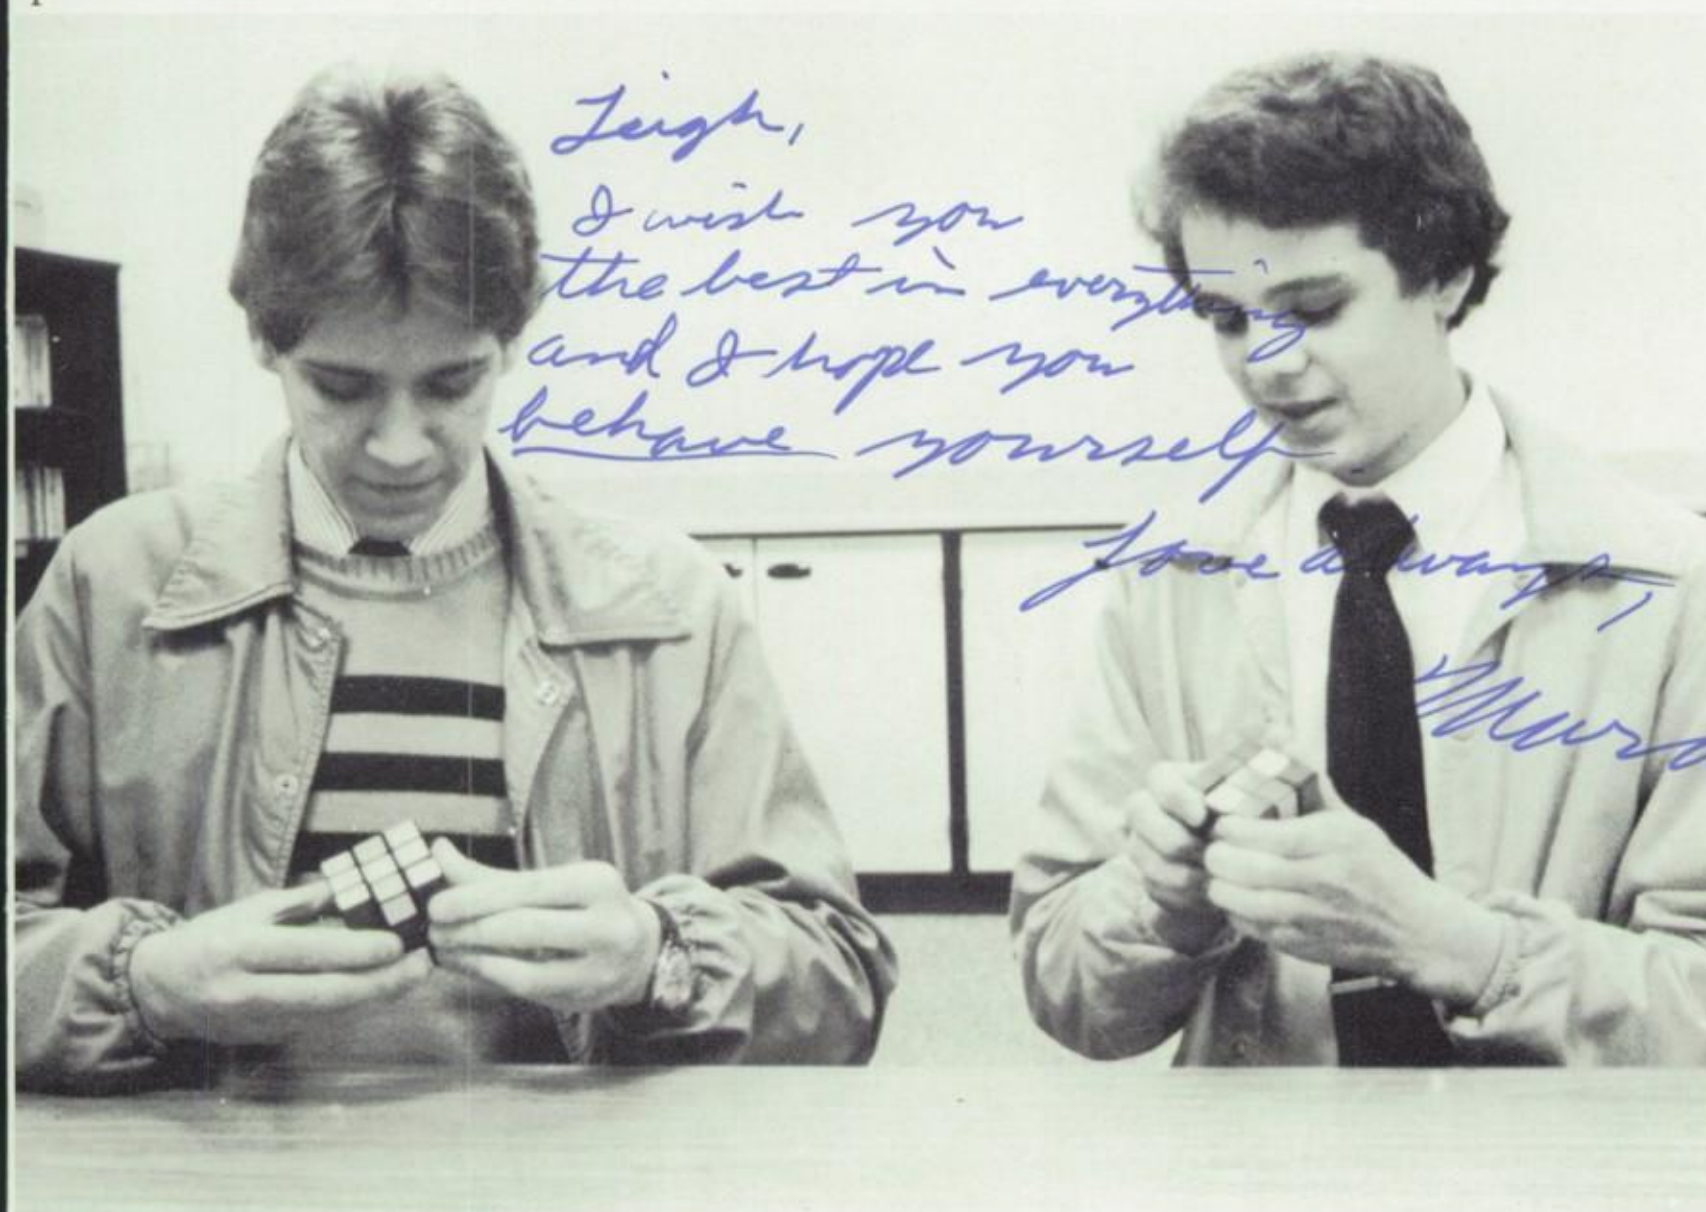 Leigh,
I wish you
the best in everything
and I hope you
behave yourself
Love always,